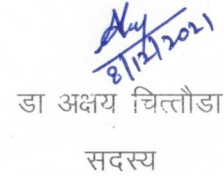 8/12/2021
डा अक्षय चित्तौडा
सदस्य